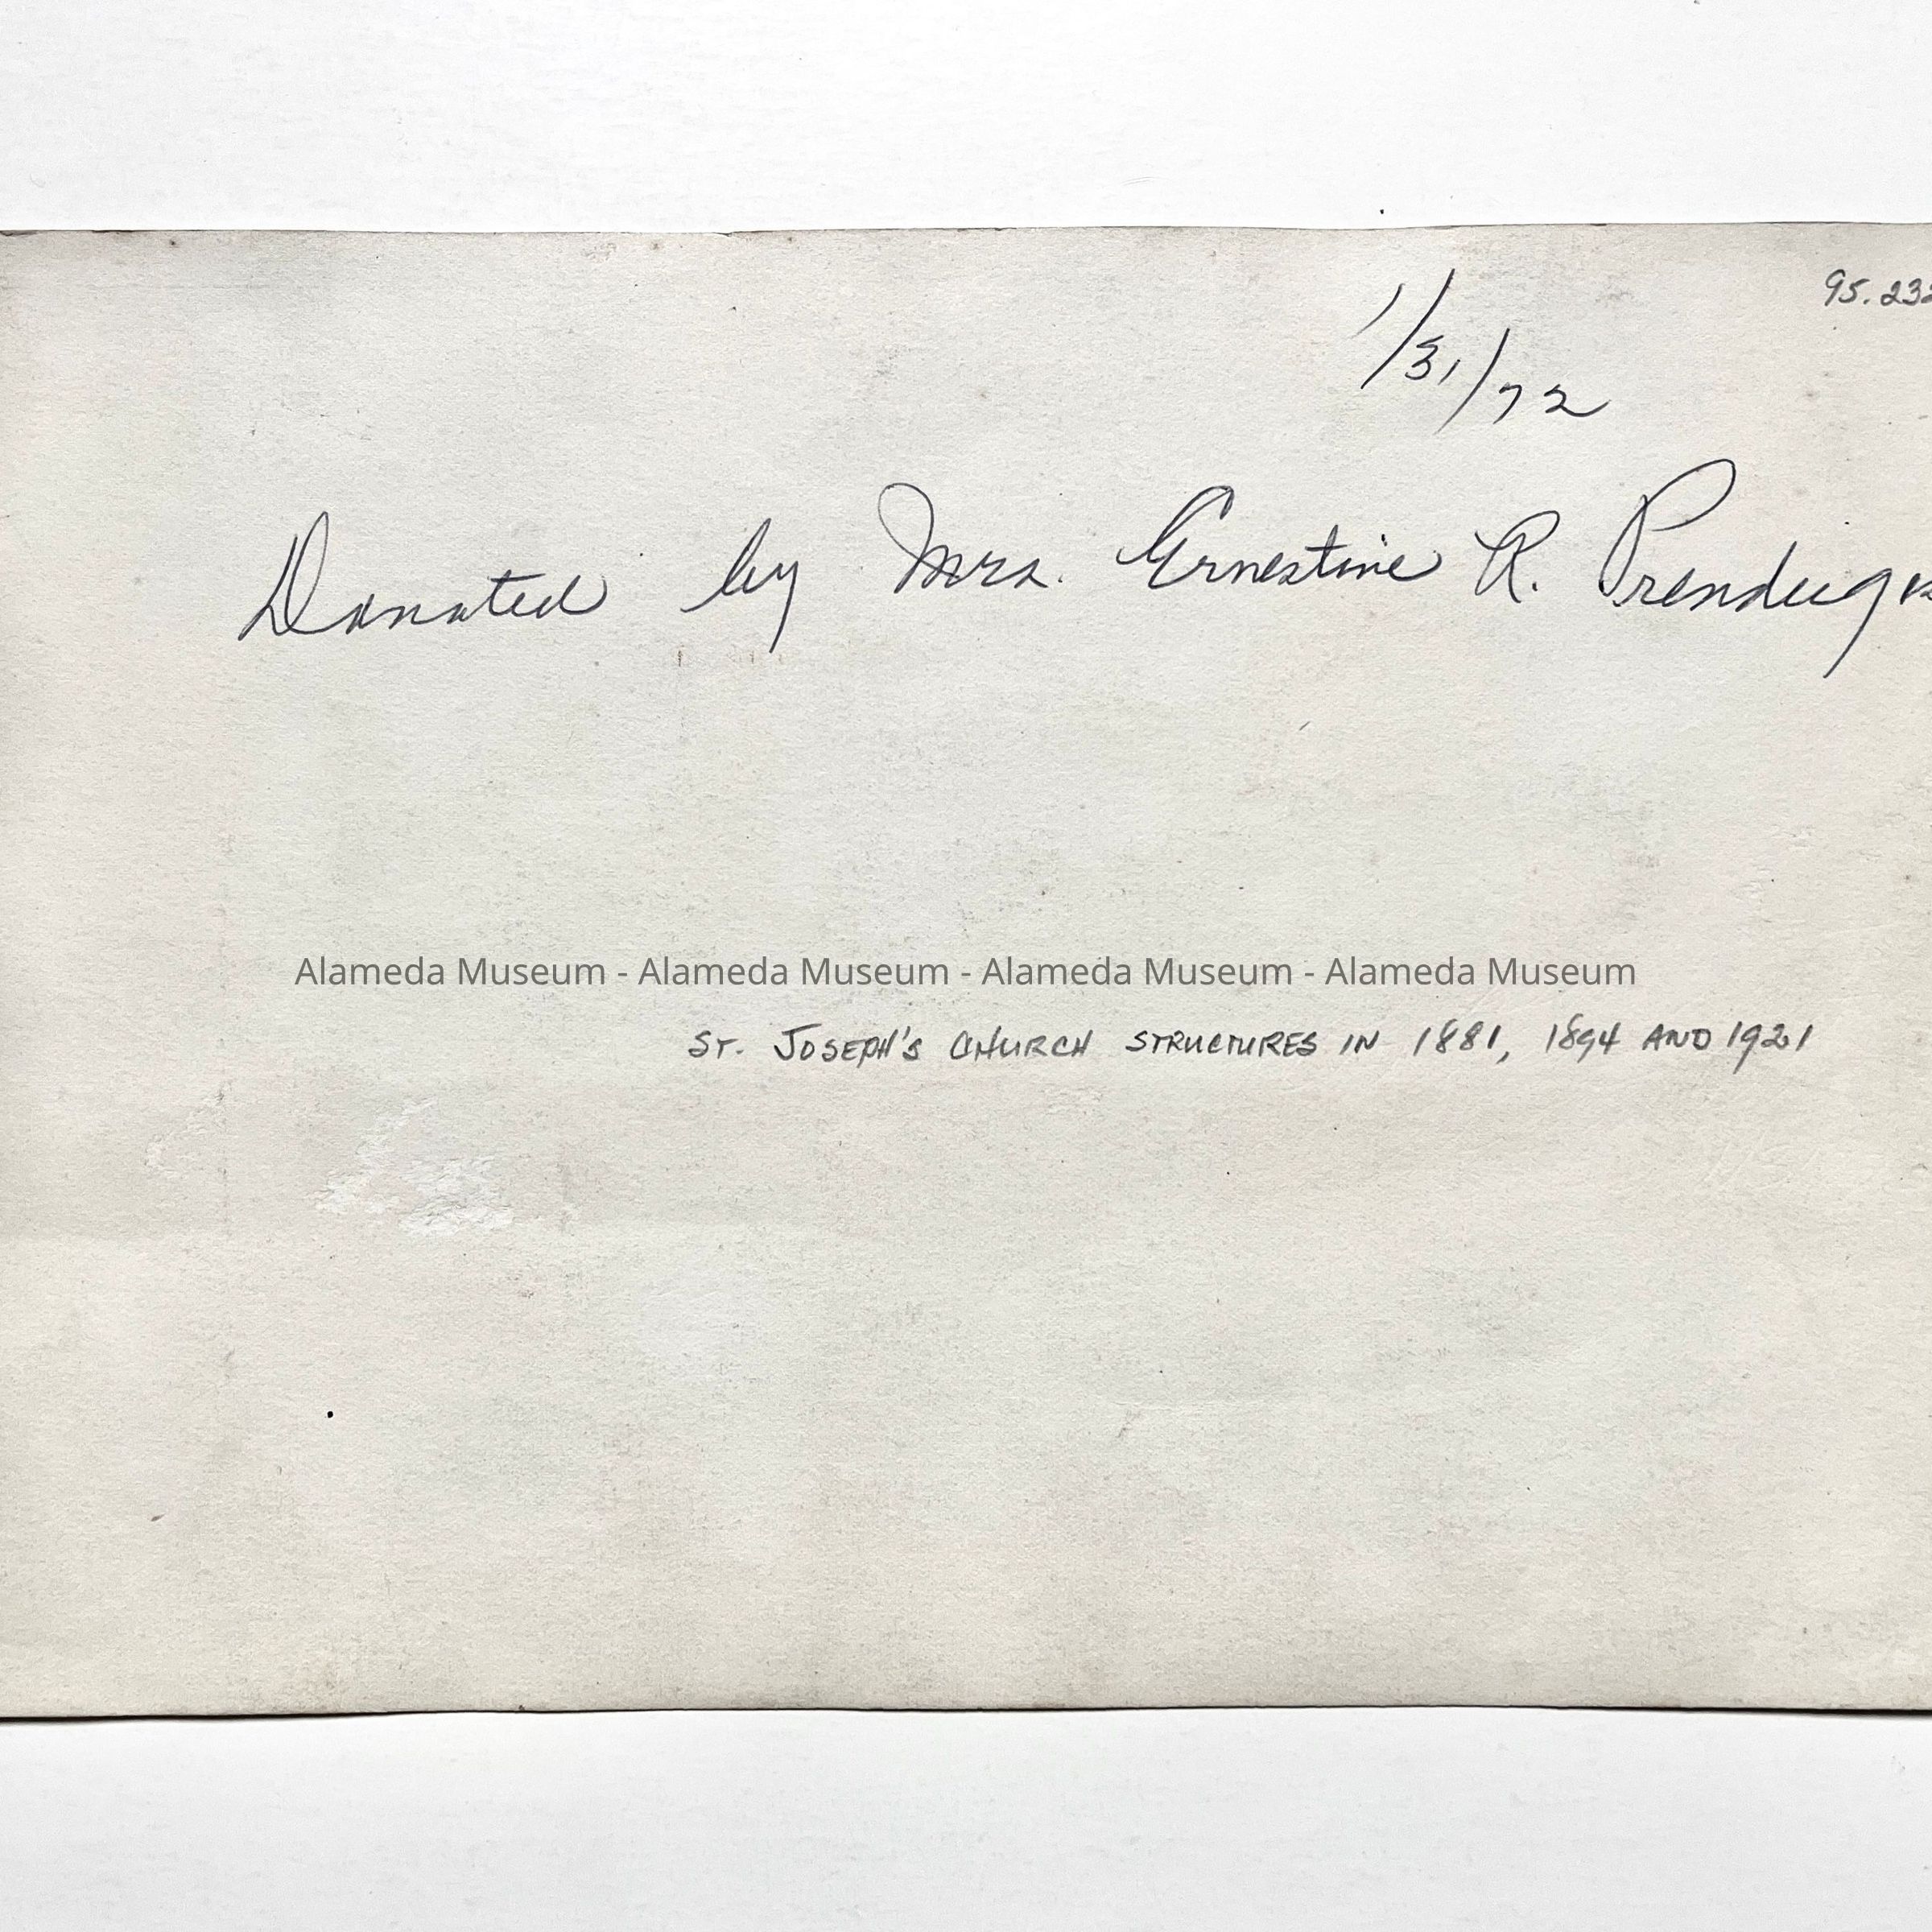 95.232
1/31/72
Donated by Mrs. Ernestine R.
Alameda Museum - Alameda Museum - Alameda Museum - Alameda Museum
ST. JOSEPH'S CHURCH STRUCTURES IN 1881, 1894 AND 1921